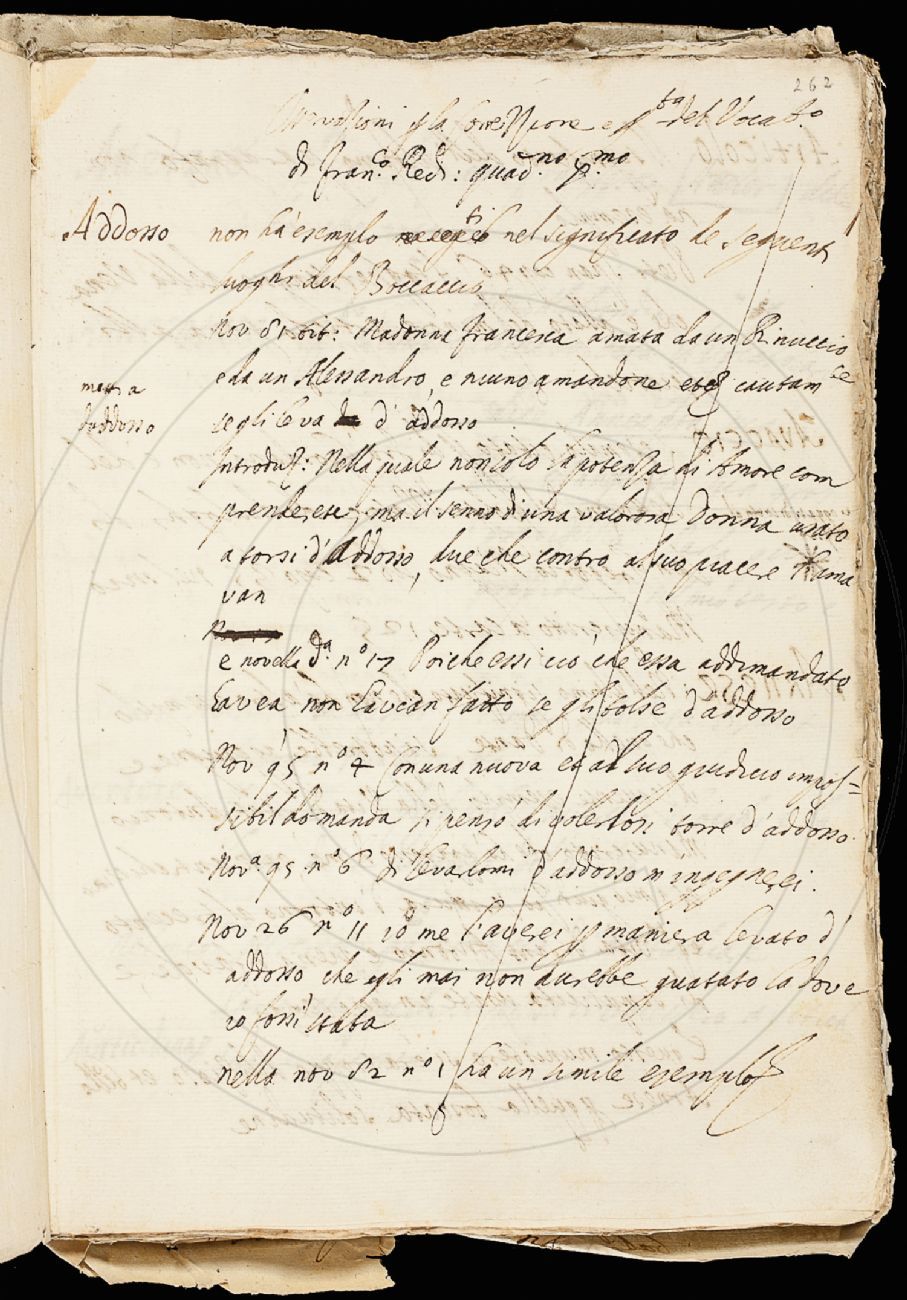 262
Osservazioni p la Correzzione e pta del Vocabo.
di Franco. Redi: quadno. pmo.
Addosso non há esempio nel significato de seguenti
luoghi del Boccaccio
Nov 81 tit: Madonna francesca amata da un Rinuccio
e da un Alessandro, e niuno amandone etc cautamce
se gli leva d'addosso
matt a
d'addosso
Introduz: Nella quale non solo la potenza di Amore com
prenderete, ma il senno di una valorosa Donna usato
a torsi d'addosso, due che contro al suo piacere l'ama
van
e novella da. no 17 Poiche essi ciò che essa addimandato
Lavea non Lavean fatto se gli tolse d'addosso
Nov 95 no 4 Con una nuova et al suo giudicio impos=
sibil domanda si pensò di volerlosi torre d'addosso.
Nova 95 no 6 di levarlomi d'addosso m'ingegnerei.
Nov 26 no 11 io me l'averei p maniera levato d'
addosso che egli mai non aurebbe guatato la dove
io fossi stata
nella nov 82 no 1 ha un simile esempio